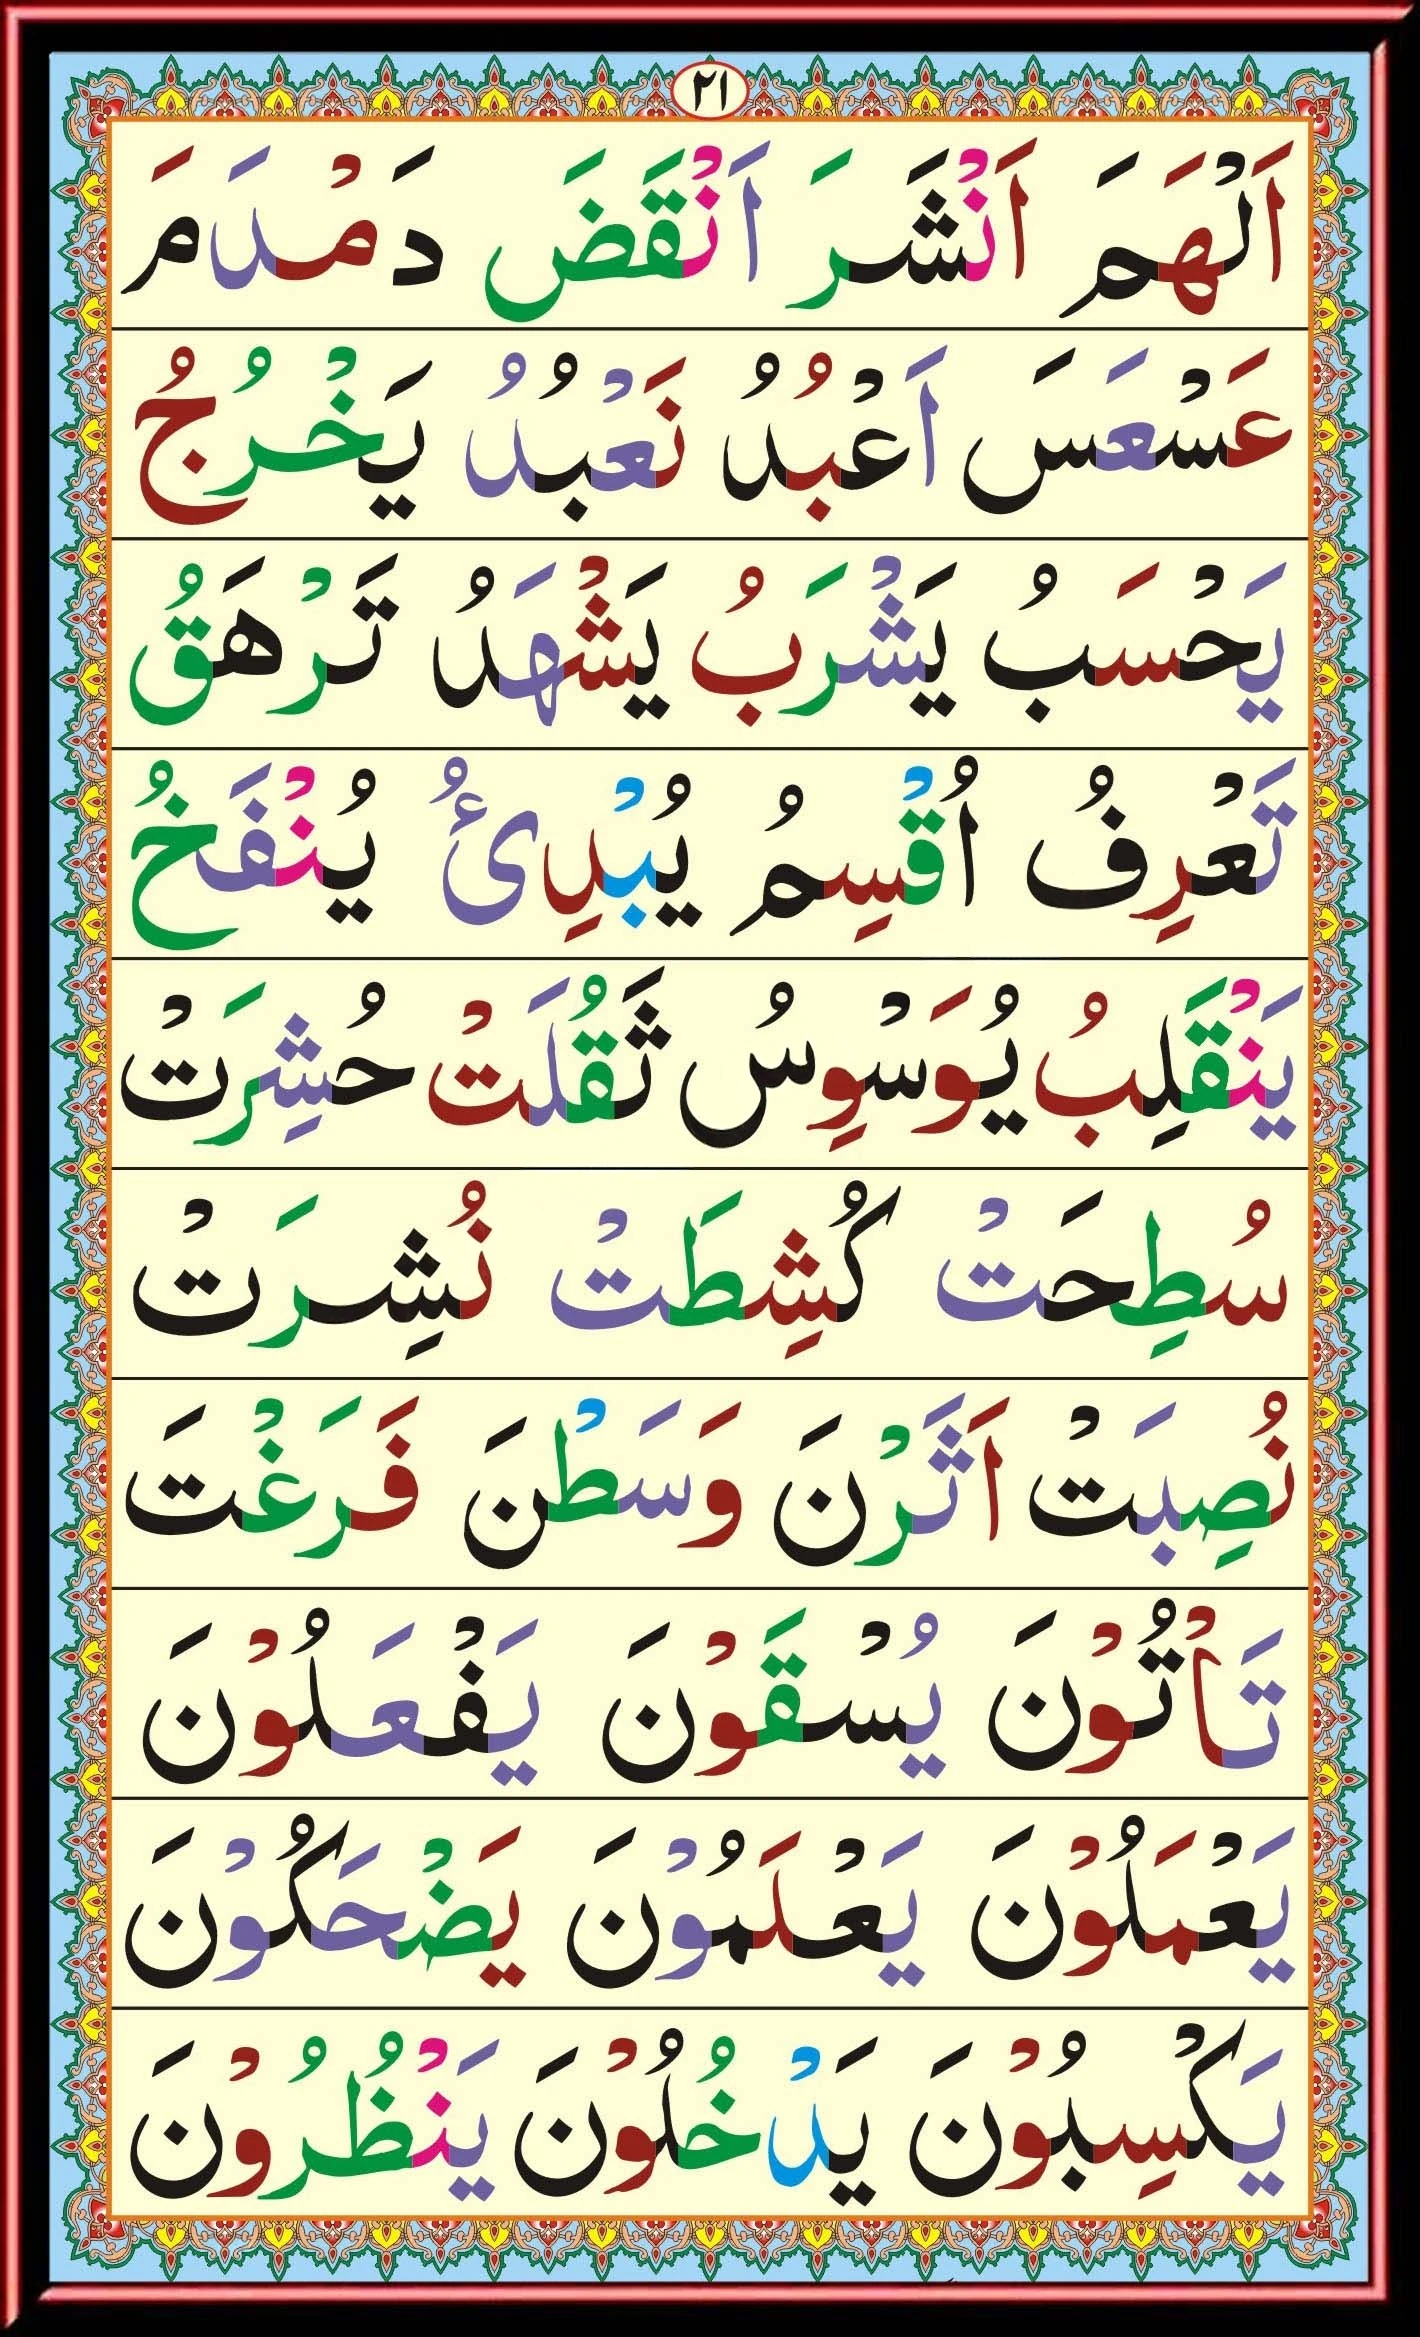 ٢١
اَلْهَمَ اَنْشَرَ اَنْقَضَ دَمْدَمَ
عَسْعَسَ اَعْبُدُ نَعْبُدُ يَخْرُجُ
يَحْسَبُ يَشْرَبُ يَشْهَدُ تَرْهَقُ
تَعْرِفُ اُقْسِمُ يُبْدِئُ يُنْفَخُ
يَنْقَلِبُ يُوَسْوِسُ ثَقُلَتْ حُشِرَتْ
سُطِحَتْ كُشِطَتْ نُشِرَتْ
نُصِبَتْ اَثَرْنَ وَسَطْنَ فَرَغْتَ
تَاْتُوْنَ يُسْقَوْنَ يَفْعَلُوْنَ
يَعْمَلُوْنَ يَعْلَمُوْنَ يَضْحَكُوْنَ
يَكْسِبُوْنَ يَدْخُلُوْنَ يَنْظُرُوْنَ